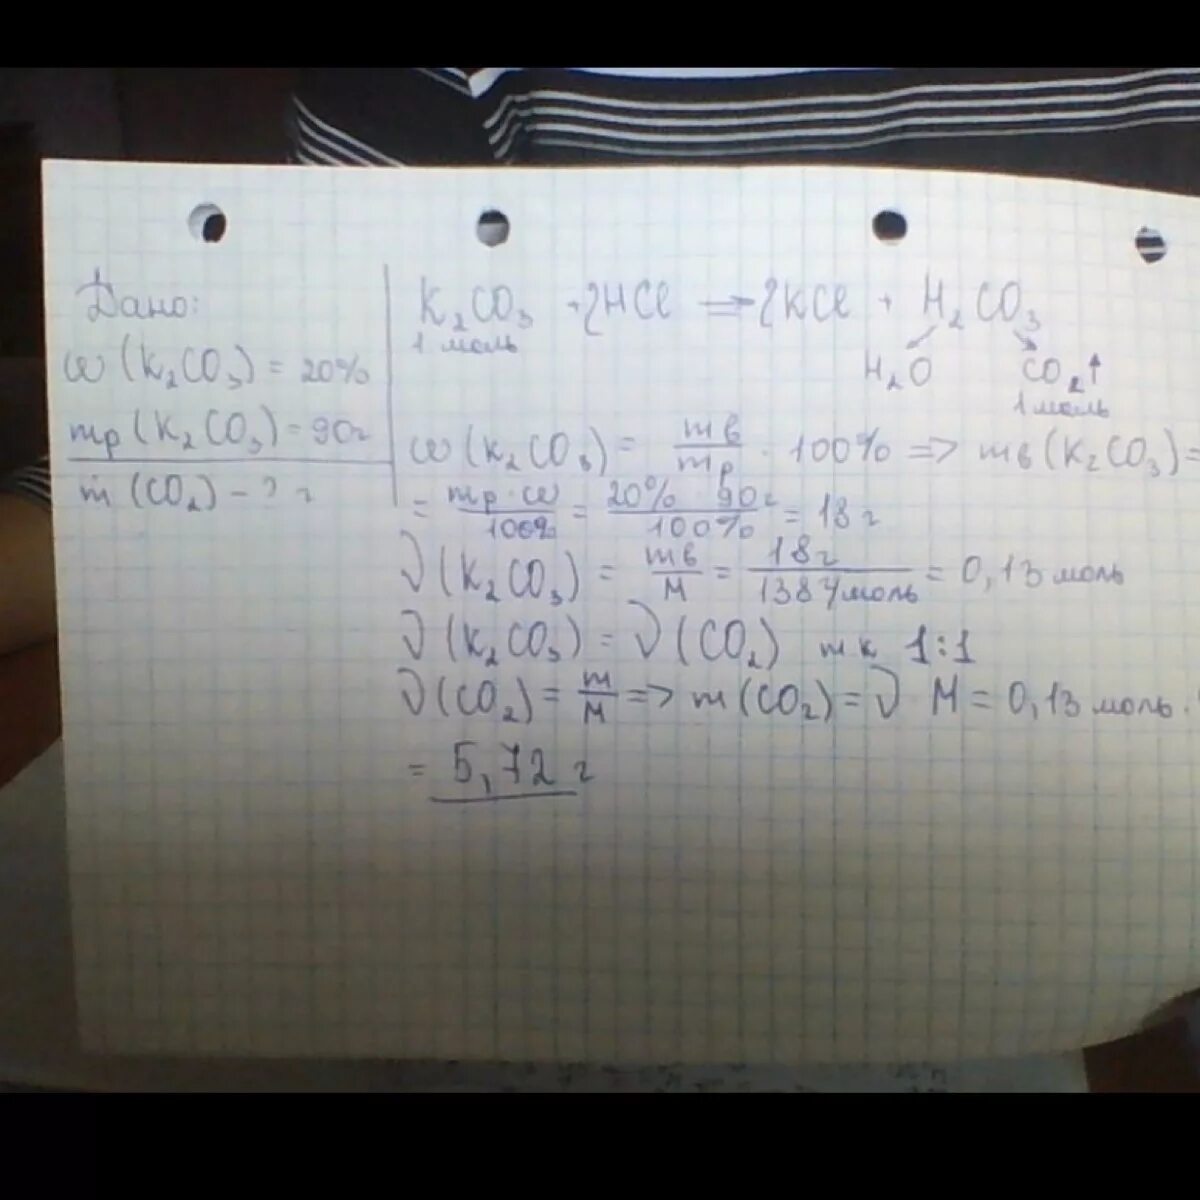 Дано:
ω (K₂CO₃) = 20%
mр (K₂CO₃) = 90г
m (CO₂) - ? г
K₂CO₃ + 2HCl ⇒ 2KCl + H₂CO₃
1 моль
H₂O CO₂↑
1 моль
ω (K₂CO₃) = mв/mр · 100% => mв (K₂CO₃) =
= mр · ω/100% = 20% · 90г/100% = 18 г
ν (K₂CO₃) = mв/M = 18г/138г/моль = 0,13 моль
ν (K₂CO₃) = ν (CO₂) т к 1:1
ν (CO₂) = m/M => m (CO₂) = ν M = 0,13 моль ·
= 5,72 г